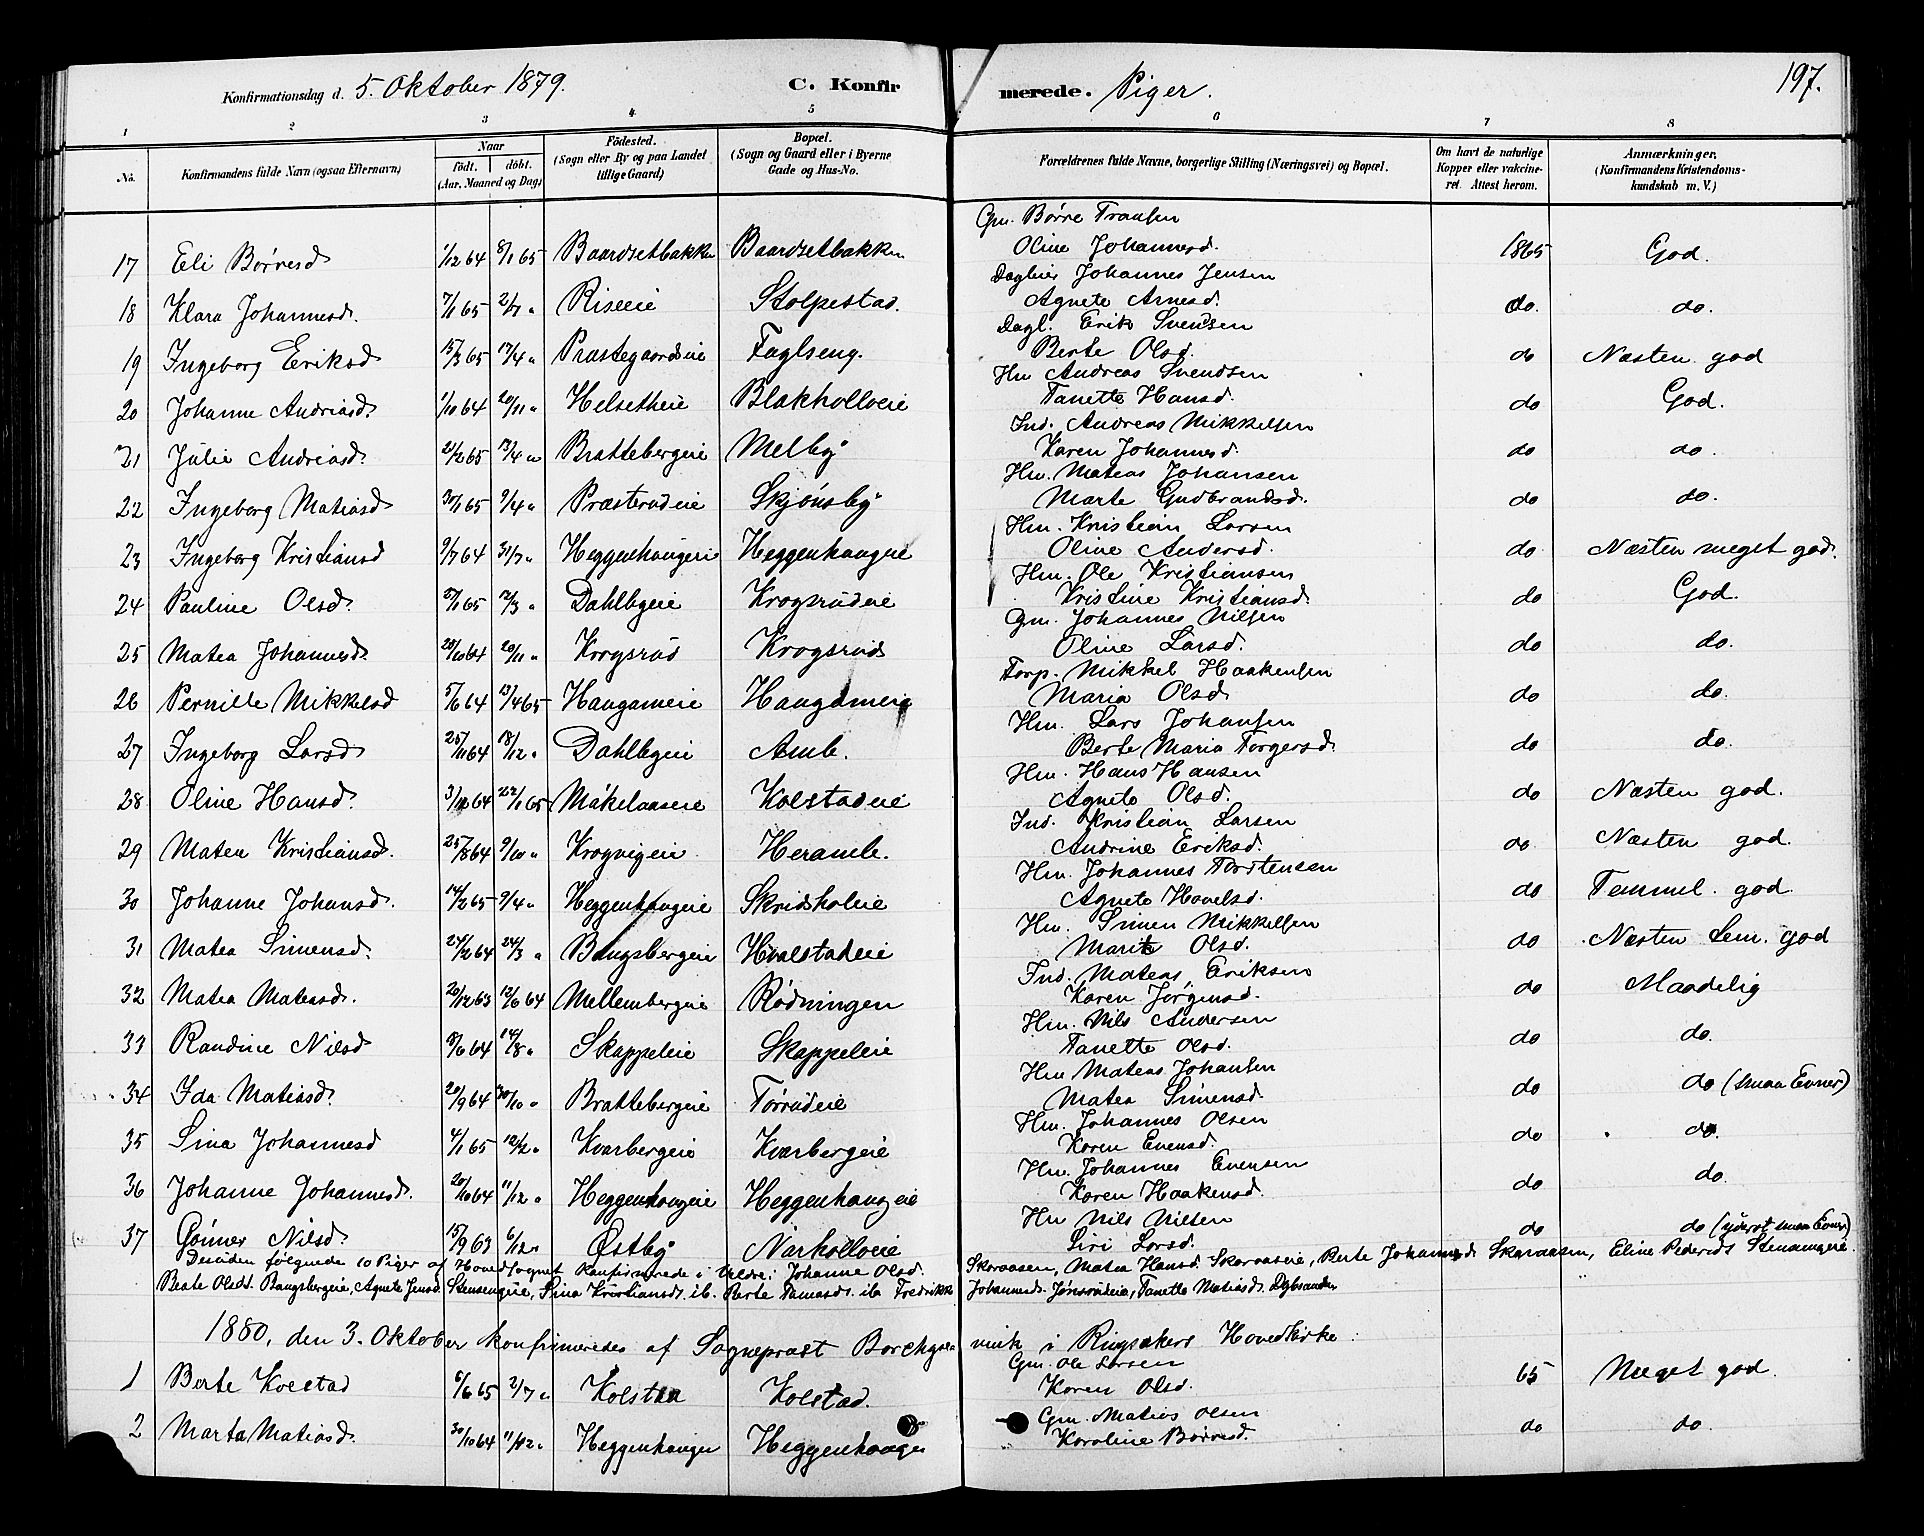 Konfirmationsdag d. 5. Oktober 1879. C. Konfirmerede. Piger. 197.
1 2 3 4 5 6 7 8
No. Konfirmandens fulde Navn (ogsaa Efternavn) Naar födt. döbt. (Aar, Maaned og Dag) Födested. (Sogn eller By og paa Landet tillige Gaard) Bopæl. (Sogn og Gaard eller i Byerne Gade og Hus-No. Forældrenes fulde Navne, borgerlige Stilling (Næringsvei) og Bopæl. Om havt de naturlige Kopper eller vakcineret. Attest herom. Anmærkninger. (Konfirmandens Kristendomskundskab m. V.)
Gm. Børre Fransen
17 Eli Børresd 1/12 64 8/1 65 Baardsetbakken Baardsetbakken Oline Johannesd. 1865 God.
Dagleier Johannes Jensen
18 Klara Johannesd. 7/1 65 2/7 " Riseeie Stolpestad. Agnete Arnesd. do. do.
Dagl. Erik Svensen
19 Ingeborg Eriksd 15/3 65 17/4 " Præstegaardseie Fuglseng. Berte Olsd. do Næsten god
Hm Andreas Svendsen
20 Johanne Andreasd. 1/10 64 20/11 " Helsetheie Blakholloeie Tanette Hansd. do God.
Ind. Andreas Mikkelsen
21 Julie Andreasd. 21/2 65 17/4 " Brattebergeie Melby Karen Johannesd. do do.
Hm. Mateas Johansen
22 Ingeborg Matiasd 30/1 65 9/4 " Præsterudeie Skjønsby Marte Gudbrandsd. do do.
Hm. Kristian Larsen
23 Ingeborg Kristiansd 9/7 64 31/7 " Heggenhaugeie Heggenhaugeie Oline Andersd. do Næsten meget god.
Hm. Ole Kristiansen
24 Pauline Olsd. 5/1 65 12/3 " Dahlbyeie Krogsrudeie Kristine Kristiansd. do God.
Gm. Johannes Nilsen
25 Matea Johannesd. 28/10 64 20/11 " Krogsrud Krogsrud Oline Larsd. do do.
Torp. Mikkel Haakensen
26 Pernille Mikkelsd 5/6 64 13/4 65 Haugameie Haugameie Maria Olsd do do.
Hm. Lars Johansen
27 Ingeborg Larsd 25/11 64 18/12 " Dahlbyeie Amb. Berte Maria Torgersd. do do.
Hm. Hans Hansen
28 Oline Hansd. 3/10 64 22/1 65 Mäkelaaseie Kolstadeie Agnete Olsd. do Næsten god.
Ind. Kristian Larsen
29 Matea Kristiansd. 25/8 64 9/10 " Krogvigeie Heramb. Andrine Eriksd. do Næsten god.
Hm. Johannes Torstensen
30 Johanne Johansd. 14/2 65 9/4 " Heggenhaugeie Skridsholeie Agnete Hovelsd. do Temmel. god
Hm. Simen Mikkelsen
31 Matea Simensd. 24/2 64 24/3 " Bangsbergeie Hvalstadeie Marit Olsd. do Næsten tem. god
Ind. Mateas Eriksen
32 Matea Mateasd. 20/12 63 12/6 64 Mellembergeie Rødningen Karen Jørgensd. do Maadelig
Hm. Nils Andersen
33 Randine Nilsd 5/6 64 14/8 " Skappeleie Skappeleie Tanette Olsd. do do.
Hm Mateas Johansen
34 Ida Matiasd. 20/9 64 30/10 " Brattebergeie Tørrudeie Matea Simensd. do do (smaa Evner)
Hm. Johannes Olsen
35 Sina Johannesd 4/1 65 12/2 " Kvarbergeie Kvarbergeie Karen Evensd. do do.
Hm. Johannes Evensen
36 Johanne Johannesd. 20/10 64 11/12 " Heggenhaugeie Heggenhaugeie Karen Haakensd. do do.
Hm Nils Nilsen
37 Gunner Nilsd. 15/9 63 6/12 " Østby Narkolloeie Siri Larsd. do do (yderst smaa Evner)
Desuden følgende 10 Piger af Hovedsognet konfirmerede i Veldre: Johanne Olsd. Skaraasen, Matea Hansd. Skaraaseie, Berte Johannesd Skaraasen, Eline Pedersd. Stensengeie
Beate Olsdt. Bangsbergeie, Agnete Jensd. Stensengeie, Sina Kristiansd. ib. Berte Tomasd. ib. Fredrikke Johannesd. Jønsrudeie, Tanette Matiasd. Dybsanden
1880, den 3. Oktober konfirmeredes af Sogneprost Borchgrevink i Ringsakers Hovedkirke:
Gm. Ole Larsen
1 Berte Kolstad 6/6 65 2/7 " Kolstad Kolstad. Karen Olsd. 65 Meget god.
Gm. Matias Olsen
2 Marta Matiasd. 30/10 64 11/12 " Heggenhaugen Heggenhaugen Karoline Børresd. do do.